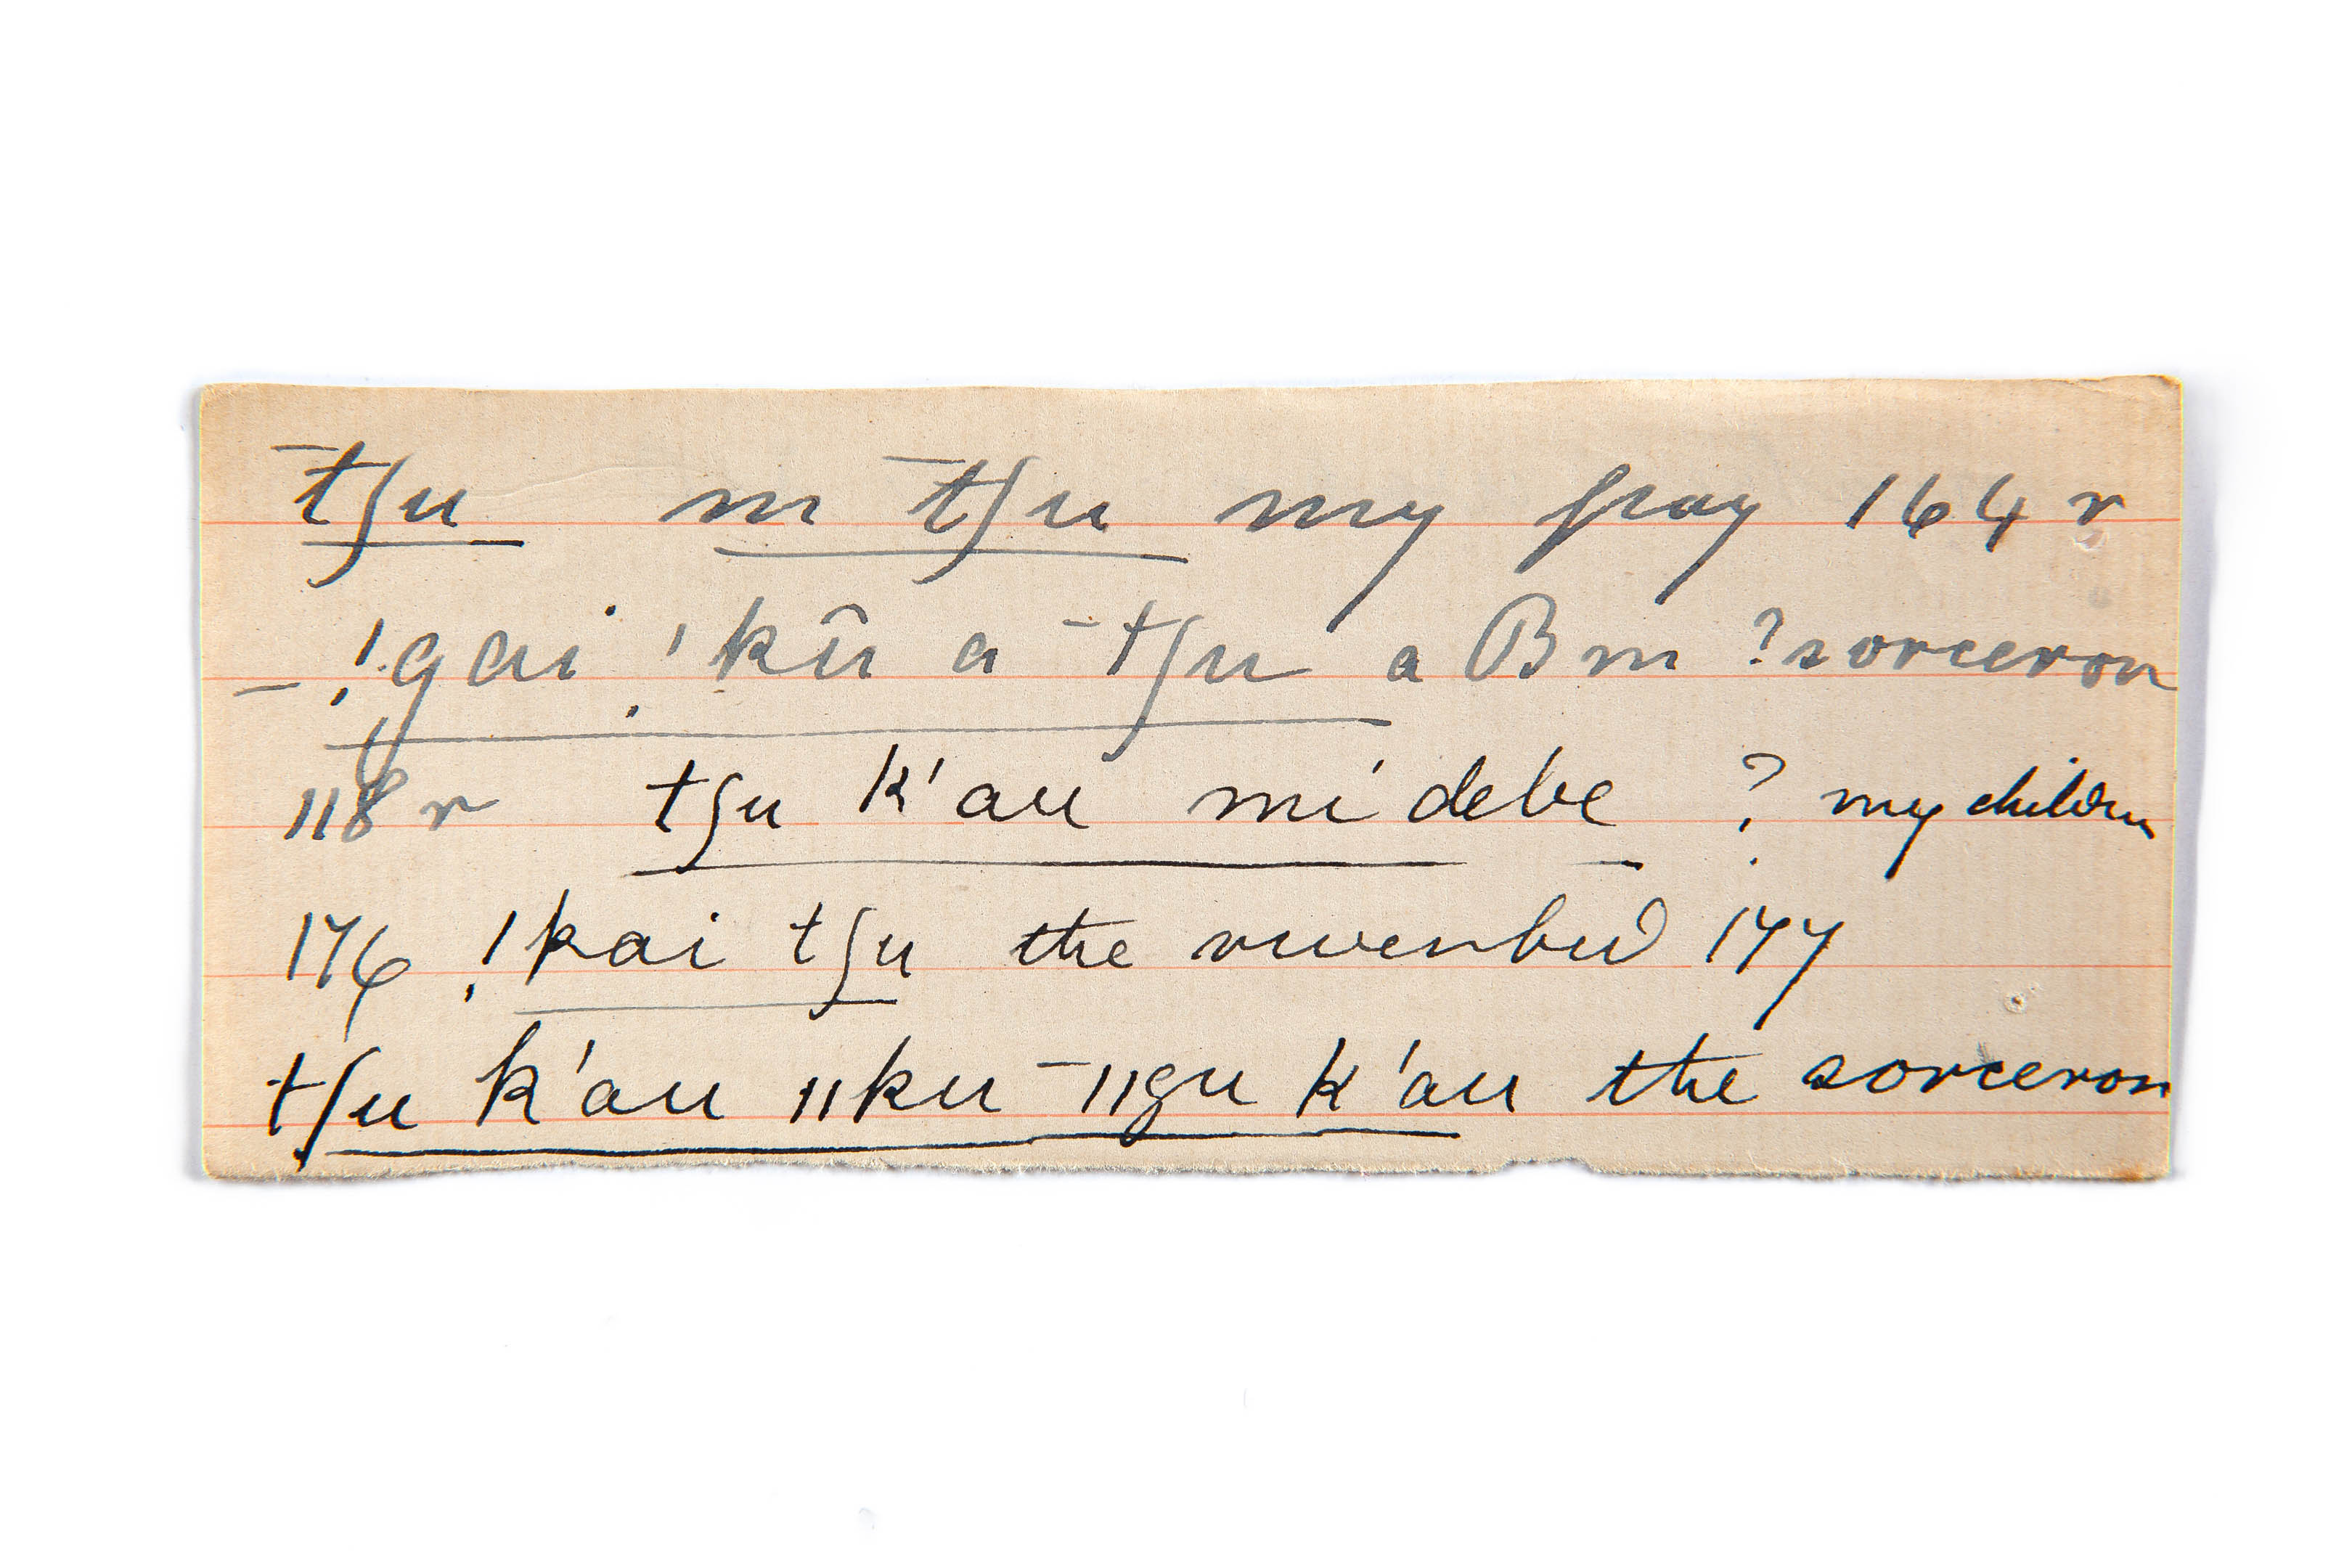 ¯tʃu m ¯tʃu my pay 164 r
– !gai !kũ a ¯tʃu a Bm ? sorceror
118 r tʃu k'au mi debe ? my children
176 !kai tʃu the 177
tʃu k'au ǁku ¯ǁgu k'au the sorceror